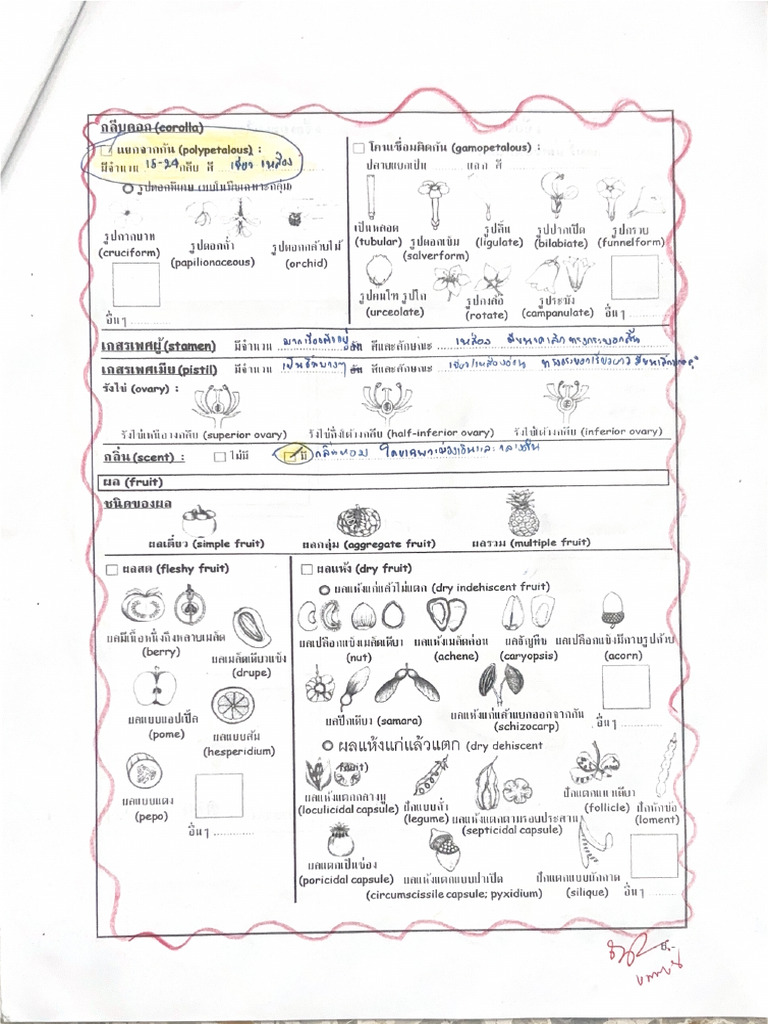 กลีบดอก (corolla)
แยกจากกัน (polypetalous) :
มีจำนวน 15-24 กลีบ สี เขียว เหลือง
รูปดอกพิเศษ พบในพืชเฉพาะกลุ่ม
รูปกากบาท (cruciform)
รูปดอกถั่ว (papilionaceous)
รูปดอกกล้วยไม้ (orchid)
อื่นๆ
โคนเชื่อมติดกัน (gamopetalous) :
ปลายแยกเป็น ........ แฉก สี
เป็นหลอด (tubular)
รูปดอกเข็ม (salverform)
รูปลิ้น (ligulate)
รูปปากเปิด (bilabiate)
รูปกรวย (funnelform)
รูปคนโท รูปโถ (urceolate)
รูปกงล้อ (rotate)
รูประฆัง (campanulate)
อื่นๆ
เกสรเพศผู้ (stamen) มีจำนวน อัน สีและลักษณะ เหลือง
เกสรเพศเมีย (pistil) มีจำนวน อัน สีและลักษณะ เขียว/เหลืองอ่อน
รังไข่ (ovary) :
รังไข่เหนือวงกลีบ (superior ovary) รังไข่กึ่งใต้วงกลีบ (half-inferior ovary) รังไข่ใต้วงกลีบ (inferior ovary)
กลิ่น (scent) : ไม่มี มี กลิ่นหอม
ผล (fruit)
ชนิดของผล
ผลเดี่ยว (simple fruit) ผลกลุ่ม (aggregate fruit) ผลรวม (multiple fruit)
ผลสด (fleshy fruit)
ผลมีเนื้อหนึ่งถึงหลายเมล็ด (berry)
ผลเมล็ดเดียวแข็ง (drupe)
ผลแบบแอปเปิ้ล (pome)
ผลแบบส้ม (hesperidium)
ผลแบบแตง (pepo)
อื่นๆ
ผลแห้ง (dry fruit)
ผลแห้งแก่แล้วไม่แตก (dry indehiscent fruit)
ผลเปลือกแข็งเมล็ดเดียว (nut)
ผลแห้งเมล็ดล่อน (achene)
ผลธัญพืช (caryopsis)
ผลเปลือกแข็งมีกาบรูปถ้วย (acorn)
ผลปีกเดียว (samara)
ผลแห้งแก่แล้วแยกออกจากกัน (schizocarp)
อื่นๆ
ผลแห้งแก่แล้วแตก (dry dehiscent fruit)
ผลแห้งแตกกลางพู (loculicidal capsule)
ฝักแบบถั่ว (legume)
ผลแห้งแตกตามรอยประสาน (septicidal capsule)
ฝักแตกแนวเดียว (follicle)
ฝักหักข้อ (loment)
ผลแตกเป็นช่อง (poricidal capsule)
ผลแห้งแตกแบบฝาเปิด (circumscissile capsule; pyxidium)
ฝักแตกแบบผักกาด (silique)
อื่นๆ